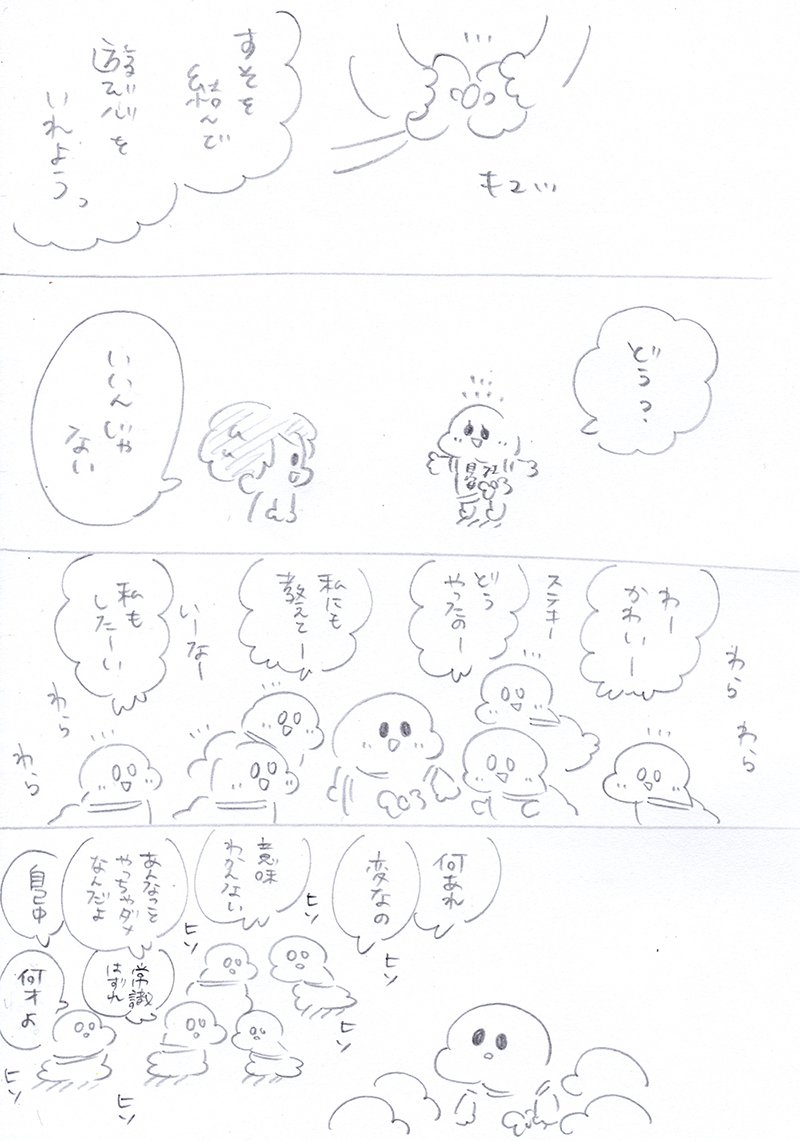 もこ…
すそを
結んで
遊び心を
いれようっ
どう？
いいんじゃ
ない
わー
かわいー
わら
わら
ステキー
どう
やったのー
私にも
教えてー
いーなー
私も
したーい
わら
わら
何あれ
変なの
ヒソ
意味
わかんない
ヒソ
あんなこと
やっちゃダメ
なんだよ
ヒソ
自己中
常識
はずれ
何才よ
ヒソ
ヒソ
ヒソ